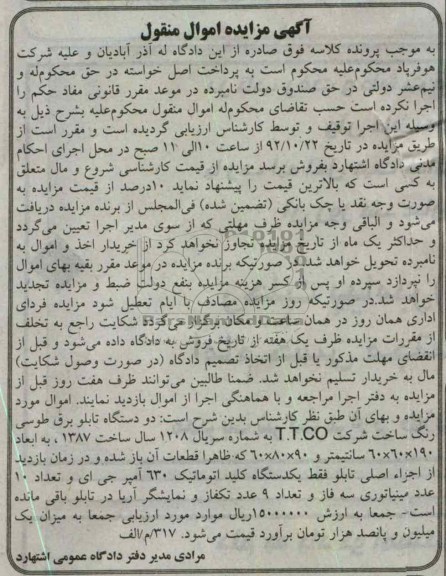 آگهی مزایده اموال منقول
به موجب پرونده کلاسه فوق صادره از این دادگاه له آذر آبادیان و علیه شرکت
هوفرپاد محکوم‌علیه محکوم است به پرداخت اصل خواسته در حق محکوم‌له و
نیم‌عشر دولتی در حق صندوق دولت نامبرده در موعد مقرر قانونی مفاد حکم را
اجرا نکرده است حسب تقاضای محکوم‌له اموال منقول محکوم‌علیه بشرح ذیل به
وسیله این اجرا توقیف و توسط کارشناس ارزیابی گردیده است و مقرر است از
طریق مزایده در تاریخ ۹۲/۱۰/۲۲ از ساعت ۱۰الی ۱۱ صبح در محل اجرای احکام
مدنی دادگاه اشتهارد بفروش برسد مزایده از قیمت کارشناسی شروع و مال متعلق
به کسی است که بالاترین قیمت را پیشنهاد نماید ۱۰درصد از قیمت مزایده به
صورت وجه نقد یا چک بانکی (تضمین شده) فی‌المجلس از برنده مزایده دریافت
می‌شود و الباقی وجه مزایده ظرف مهلتی که از سوی مدیر اجرا تعیین می‌گردد
و حداکثر یک ماه از تاریخ مزایده تجاوز نخواهد کرد از خریدار اخذ و اموال به
نامبرده تحویل خواهد شد.در صورتیکه برنده مزایده در موعد مقرر بقیه بهای اموال
را نپردازد سپرده او پس از کسر هزینه مزایده بنفع دولت ضبط و مزایده تجدید
خواهد شد.در صورتیکه روز مزایده مصادف با ایام تعطیل شود مزایده فردای
اداری همان روز در همان ساعت و مکان برگزار می‌گردد شکایت راجع به تخلف
از مقررات مزایده ظرف یک هفته از تاریخ فروش به دادگاه داده می‌شود و قبل از
انقضای مهلت مذکور یا قبل از اتخاذ تصمیم دادگاه (در صورت وصول شکایت)
مال به خریدار تسلیم نخواهد شد. ضمنا طالبین می‌توانند ظرف هفت روز قبل از
مزایده به دفتر اجرا مراجعه و با هماهنگی اجرا از اموال بازدید نمایند. اموال مورد
مزایده و بهای آن طبق نظر کارشناس بدین شرح است: دو دستگاه تابلو برق طوسی
رنگ ساخت شرکت T.T.CO به شماره سریال ۱۲۰۸ سال ساخت ۱۳۸۷ ، به ابعاد
۶۰×۶۰×۱۹۰ سانتیمتر و ۶۰×۸۰×۹۰ که ظاهرا قطعات آن باز شده و در زمان بازدید
از اجزاء اصلی تابلو فقط یکدستگاه کلید اتوماتیک ۶۳۰ آمپر جی ای و تعداد ۱۰
عدد مینیاتوری سه فاز و تعداد ۹ عدد تکفاز و نمایشگر آریا در تابلو باقی مانده
است- جمعا به ارزش ۱۵۰۰۰۰۰۰ریال موارد مورد ارزیابی جمعا به میزان یک
میلیون و پانصد هزار تومان برآورد قیمت می‌شود. ۳۱۷/م/الف
مرادی مدیر دفتر دادگاه عمومی اشتهارد